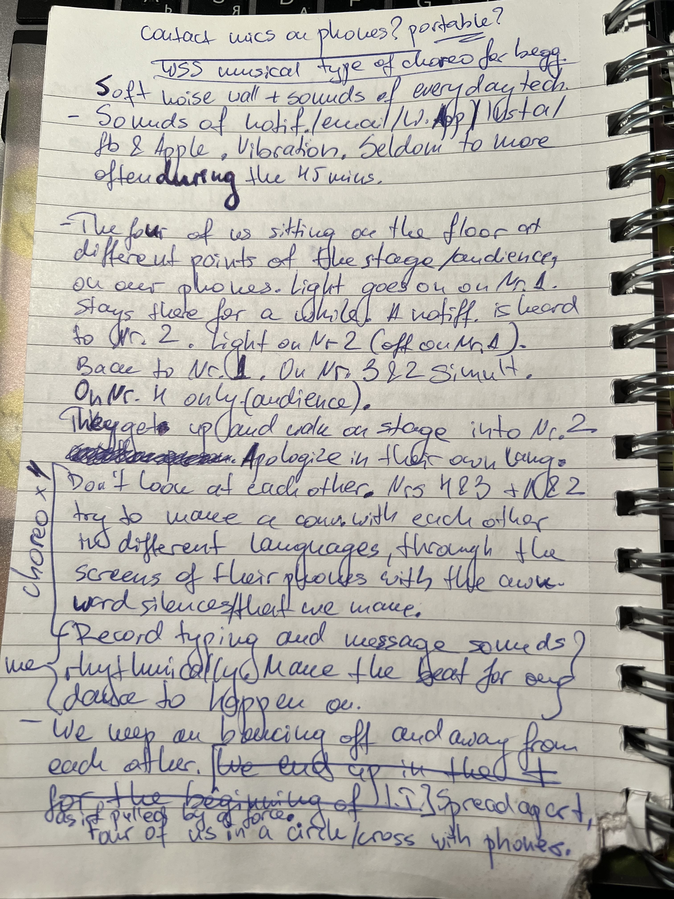 contact mics on phones? portable?
WSS musical type of choreo for begg.
Soft noise wall + sounds of everyday tech.
- Sounds of notif./email/W.App/Insta/
fb & Apple. Vibration. Seldom to more
often during the 45 mins.
- The four of us sitting on the floor at
different points of the stage/audience,
on our phones. Light goes on on Nr. 1.
stays there for a while. A notiff. is heard
to Nr. 2. Light on Nr 2 (off on Nr. 1).
Back to Nr. 1. On Nr. 3 & 2 simult.
On Nr. 4 only (audience).
They get up and walk on stage into Nr. 2
Apologize in their own lang.
Don't look at each other. Nrs 4 & 3 + 1 & 2
try to make a conv. with each other
in different languages, through the
screens of their phones with the awk-
ward silences that we make.
choreo x 4
{Record typing and message sounds?
me
rhythmically. Make the beat for our
dance to happen on.}
- We keep on bouncing off and away from
each other. [We end up in the +
for the beginning of I.I.] Spread apart,
as if pulled by a force.
Four of us in a circle/cross with phones.